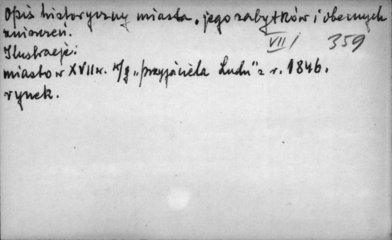 Opis historyczny miasta, jego zabytków i obecnych
zniszczeń.
VII/ 359
Ilustracje:
miasto w XVII w. w/g „Przyjaciela Ludu" z r. 1846.
rynek.